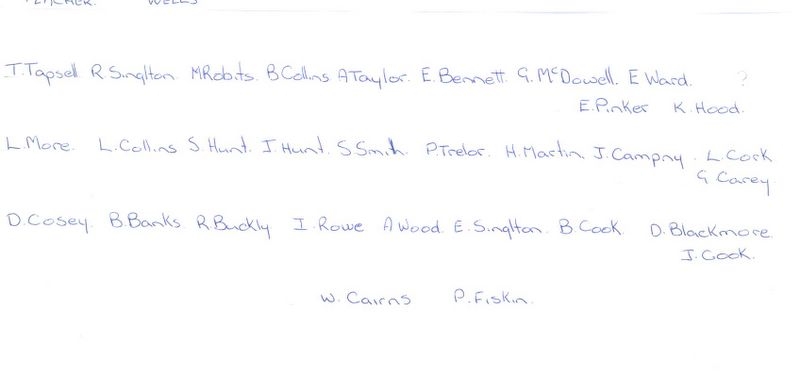 TEACHER. WELLS
T.Tapsell R Singlton. M Robits. B Collins A Taylor. E. Bennett. G. McDowell. E Ward. ?
E.Pinker K. Hood.
L.More. L.Collins S Hunt. I. Hunt. S Smith. P.Trelor. H. Martin. J. Campny. L. Cork
G Carey
D.Cosey. B.Banks R.Buckly I. Rowe A Wood. E.Singlton. B.Cook. D.Blackmore.
J.Cook.
W. Cairns P.Fiskin.